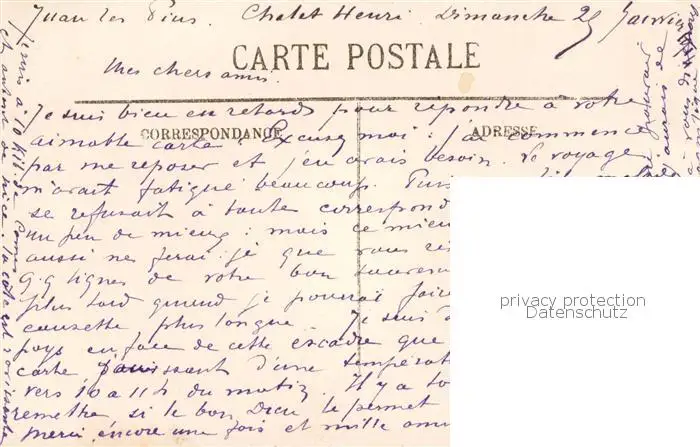 Juan les Pins. Chalet Henri. Dimanche 25 Janvier
CARTE POSTALE
Mes chers amis.
Je suis bien en retard pour répondre à votre
aimable carte : excusez moi : j'ai commencé
CORRESPONDANCE
ADRESSE
par me reposer et j'en avais besoin. Le voyage
m'avait fatigué beaucoup. Puis
se refusait à toute correspond
un peu de mieux : mais ce mieu
aussi ne ferai je que vous
q.q lignes de votre bon souveni
plus tard quand je pourrai faire
causette plus longue. Je suis
pays en face de cette escadre que
carte, jouissant d'une températ
vers 10 à 11 h du matin. Il y a
remettre si le bon Dieu le permet
Merci encore une fois et mille ami
Je suis à 10 Kil. de Cannes
et autant de Nice. la côte est ravissante
privacy protection
Datenschutz